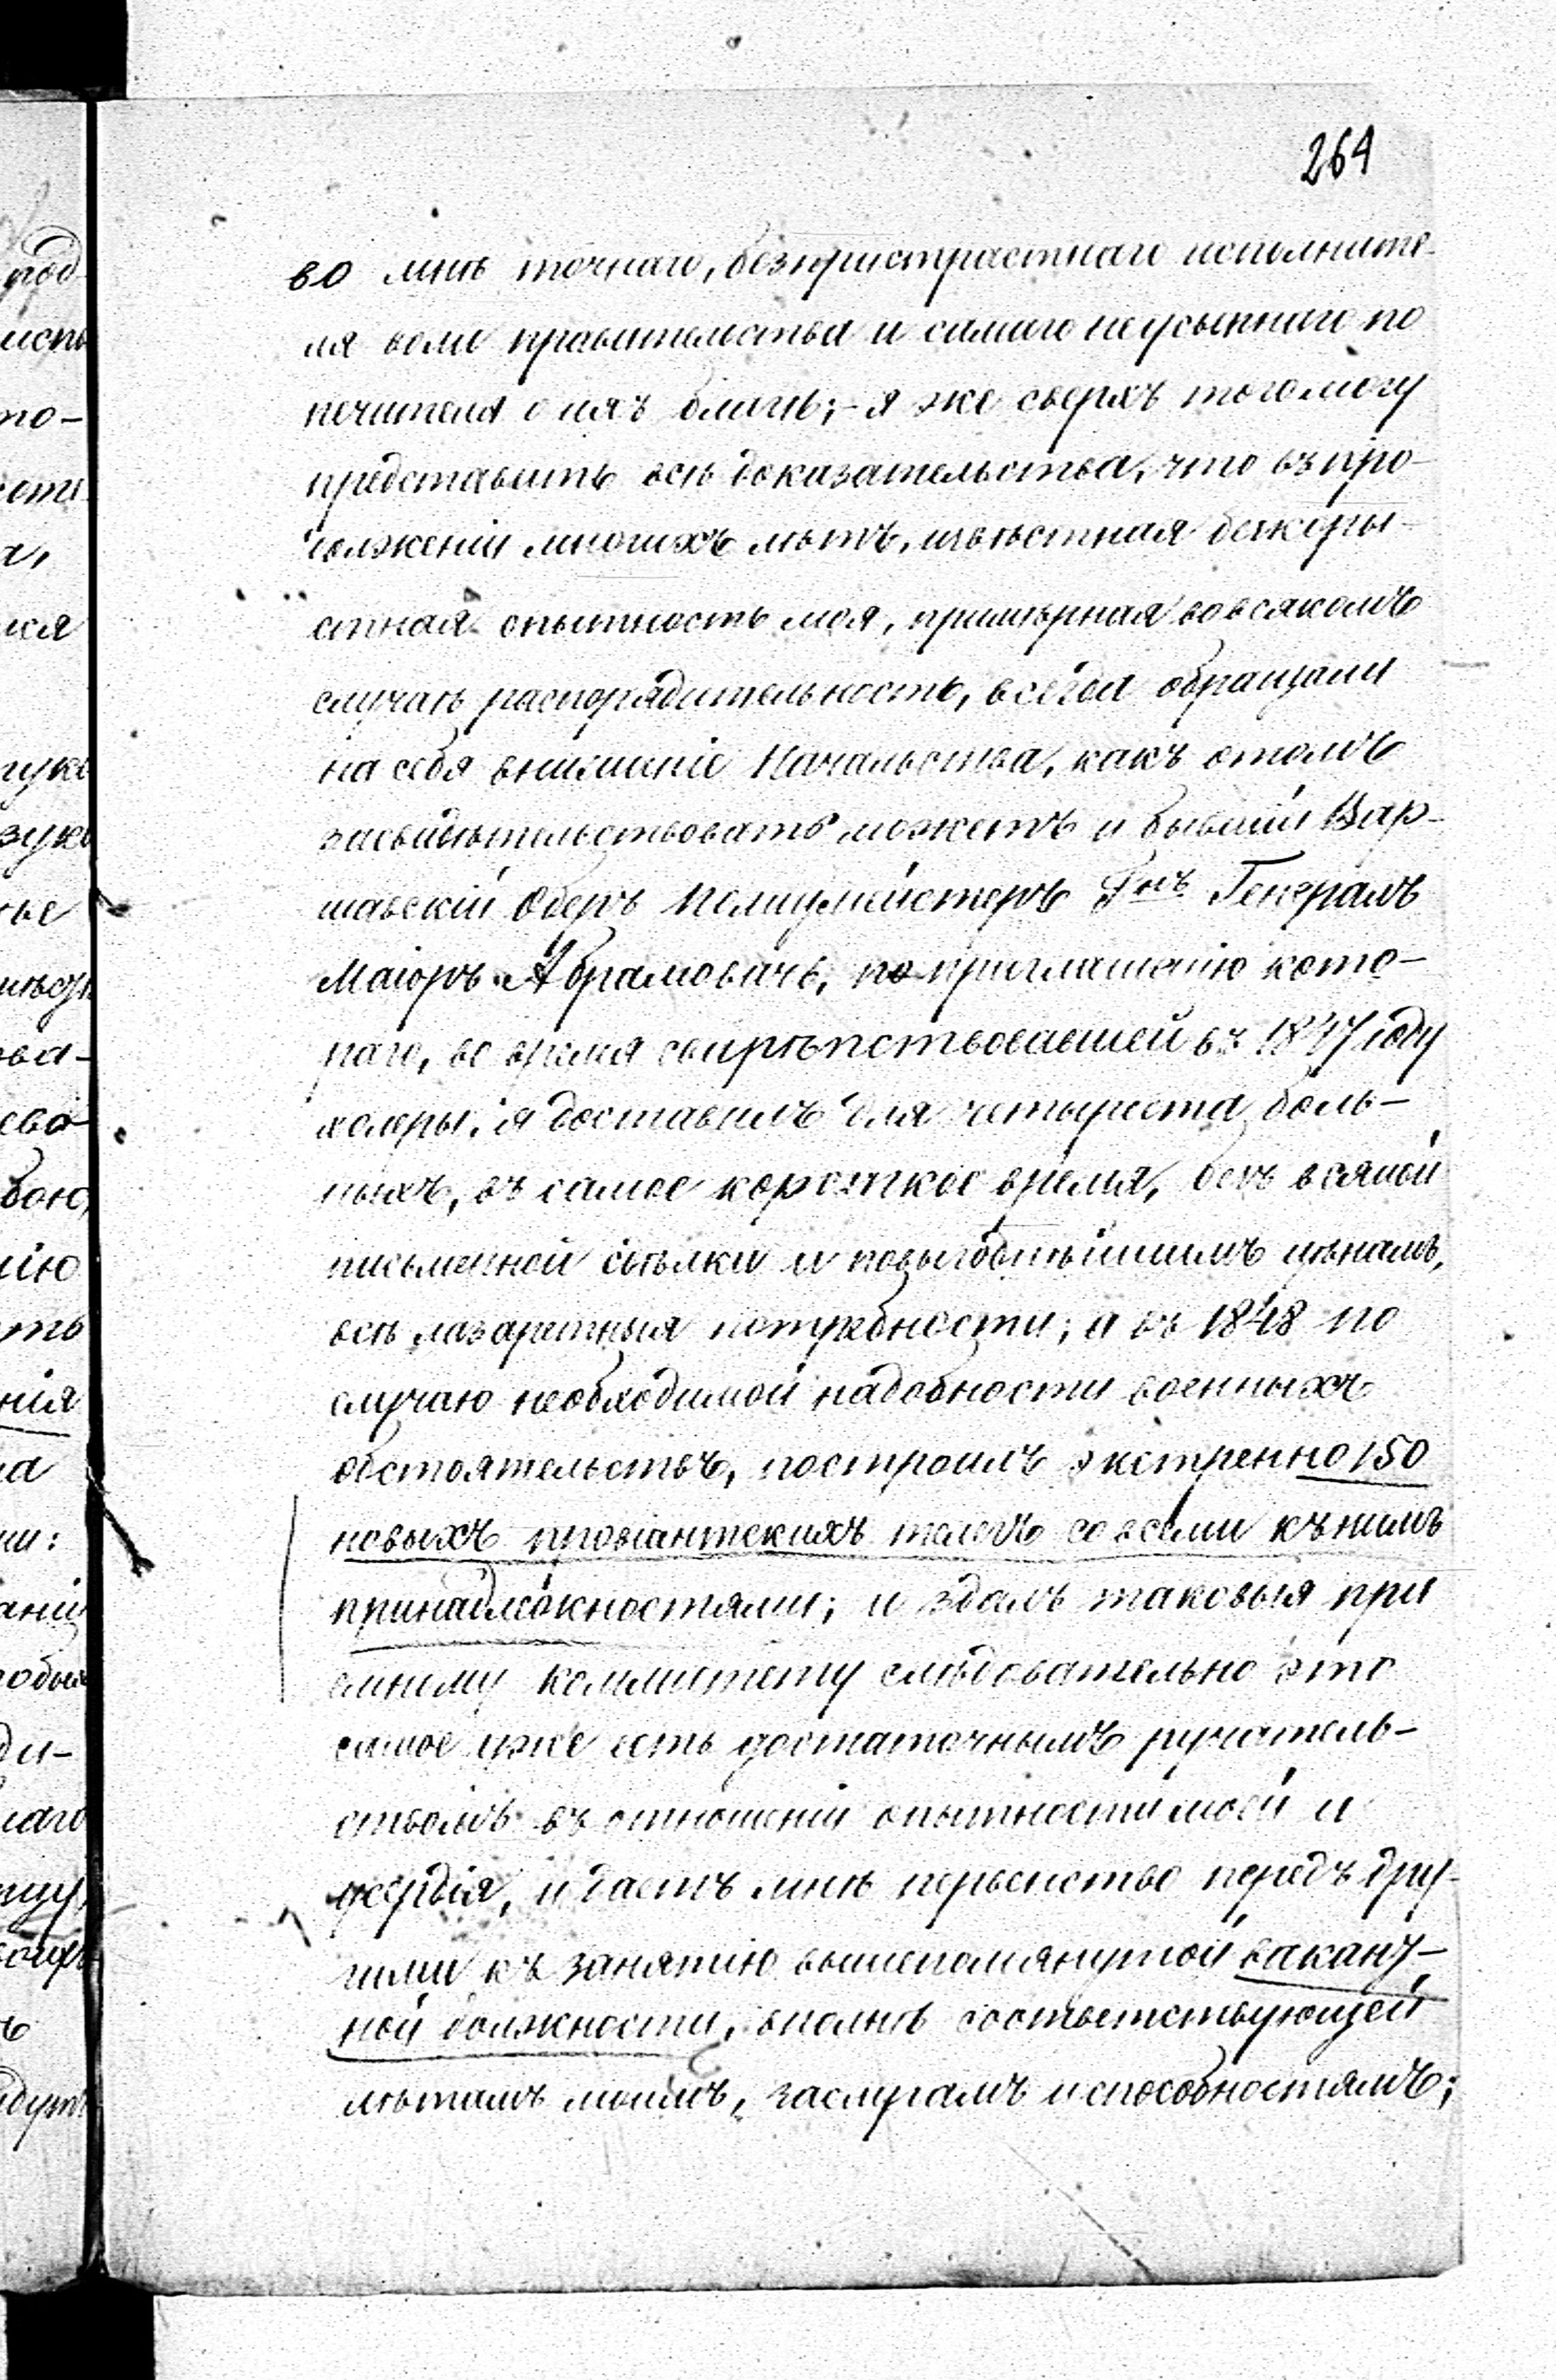 264
во мнѣ точнаго, безпристрастнаго исполните-
ля воли правительства и самаго неусыпнаго по
печителя о ихъ благѣ; - я же сверхъ того могу
представить всѣ доказательства, что въ про-
долженіи многихъ лѣтъ, извѣстная безкоры-
стная опытность моя, примѣрная во всякомъ
случаѣ распорядительность, всегда обращали
на себя вниманіе Начальства, какъ о томъ
засвидѣтельствовать можетъ и бывшій Вар-
шавскій Оберъ Полицмейстеръ Гнъ Генералъ
Маіоръ Абрамовичъ, по приглашенію кото-
раго, во время свирѣпствовавшей въ 1847 году
холеры, я доставилъ для четыреста боль-
ныхъ, въ самое короткое время, безъ всякой
письменной сдѣлки и по выгоднѣйшимъ цѣнамъ,
всѣ лазаретныя потребности; а въ 1848 по
случаю необходимой надобности военныхъ
обстоятельствъ, построилъ экстренно 150
новыхъ провіантскихъ телегъ со всеми къ нимъ
принадлежностями; и здалъ таковыя при
емному коммитету следовательно это
самое уже есть достаточнымъ ручатель-
ствомъ въ отношеніи опытности моей и
усердія, и даетъ мнѣ первенство передъ дру-
гими къ занятію вышепомянутой вакант-
ной должности, вполнѣ соотвѣтствующей
лѣтамъ моимъ, заслугамъ и способностямъ;